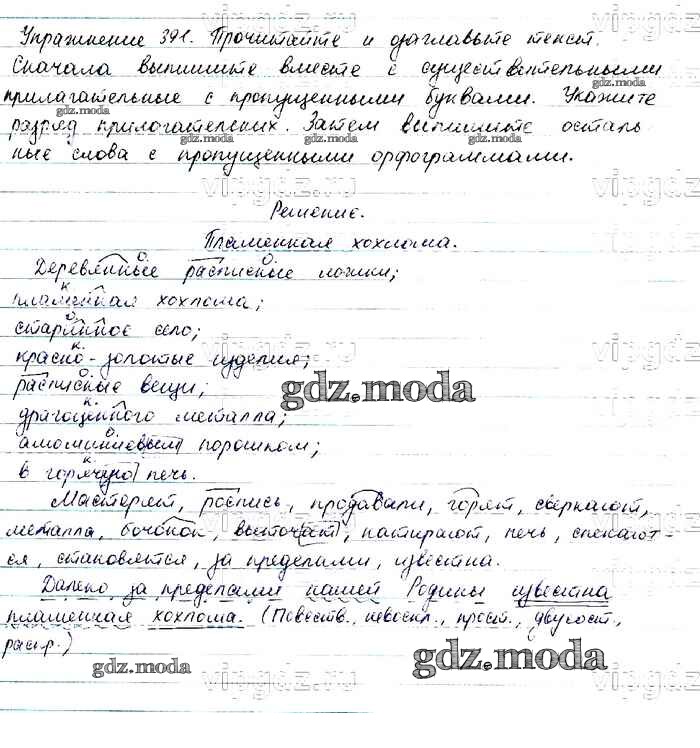 Упражнение 391. Прочитайте и озаглавьте текст.
Сначала выпишите вместе с существительными
прилагательные с пропущенными буквами. Укажите
разряд прилагательных. Затем выпишите осталь
ные слова с пропущенными орфограммами.
Решение.
Пламенная хохлома.
Деревянные расписные ложки;
пламенная хохлома;
старинное село;
красно-золотые изделия;
расписные вещи;
драгоценного металла;
алюминиевым порошком;
в горячую печь.
Мастерят, роспись, продавали, горят, сверкают,
металла, бочонок, выточат, натирают, печь, спекают-
ся, становятся, за пределами, известна.
Далеко за пределами нашей Родины известна
пламенная хохлома. (Повеств., невоскл., прост., двусост.,
распр.)
gdz.moda
vipgdz.ru